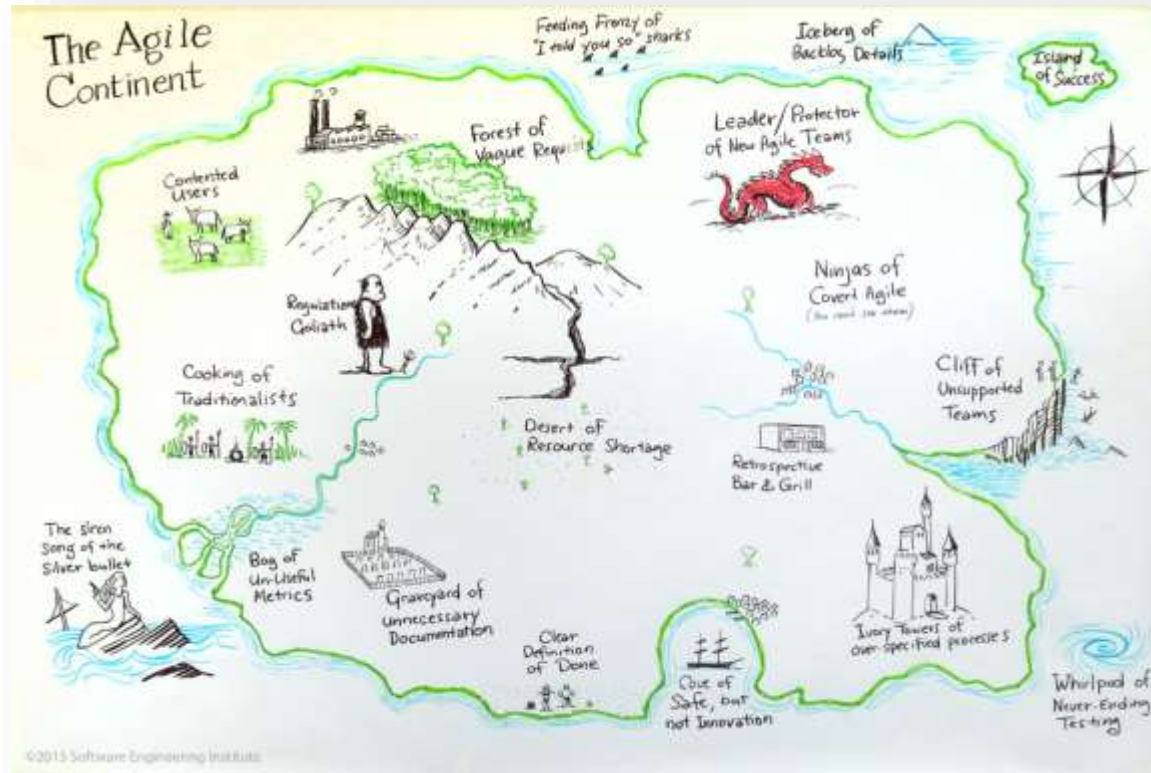 The Agile
Continent
Feeding Frenzy of
"I told you so" sharks
Iceberg of
Backlog Details
Island
of Success
Forest of
Vague Reqmts
Leader/Protector
of New Agile Teams
Contented
Users
Ninjas of
Covert Agile
(You can't see them)
Regulation
Goliath
Cooking of
Traditionalists
Cliff of
Unsupported
Teams
Desert of
Resource Shortage
Retrospective
Bar & Grill
The Siren
Song of the
Silver bullet
Bog of
Un-Useful
Metrics
Graveyard of
unnecessary
Documentation
Clear
Definition
of Done
Cove of
Safe, but
not Innovation
Ivory Towers of
over-specified processes
Whirlpool of
Never-Ending
Testing
©2015 Software Engineering Institute